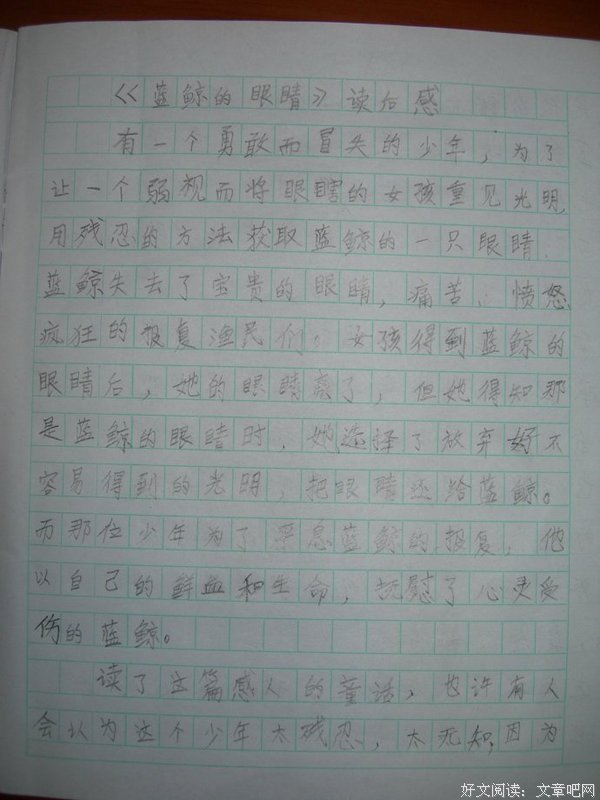 《蓝鲸的眼睛》读后感
有一个勇敢而冒失的少年,为了
让一个弱视而将眼瞎的女孩重见光明,
用残忍的方法获取蓝鲸的一只眼睛.
蓝鲸失去了宝贵的眼睛,痛苦、愤怒
疯狂的报复渔民们。女孩得到蓝鲸的
眼睛后,她的眼睛亮了,但她得知那
是蓝鲸的眼睛时,她选择了放弃好不
容易得到的光明,把眼睛还给蓝鲸。
而那位少年为了平息蓝鲸的报复,他
以自己的鲜血和生命,抚慰了心灵受
伤的蓝鲸。
读了这篇感人的童话,也许有人
会认为这个少年太残忍,太无知,因为
好文阅读:文章吧网